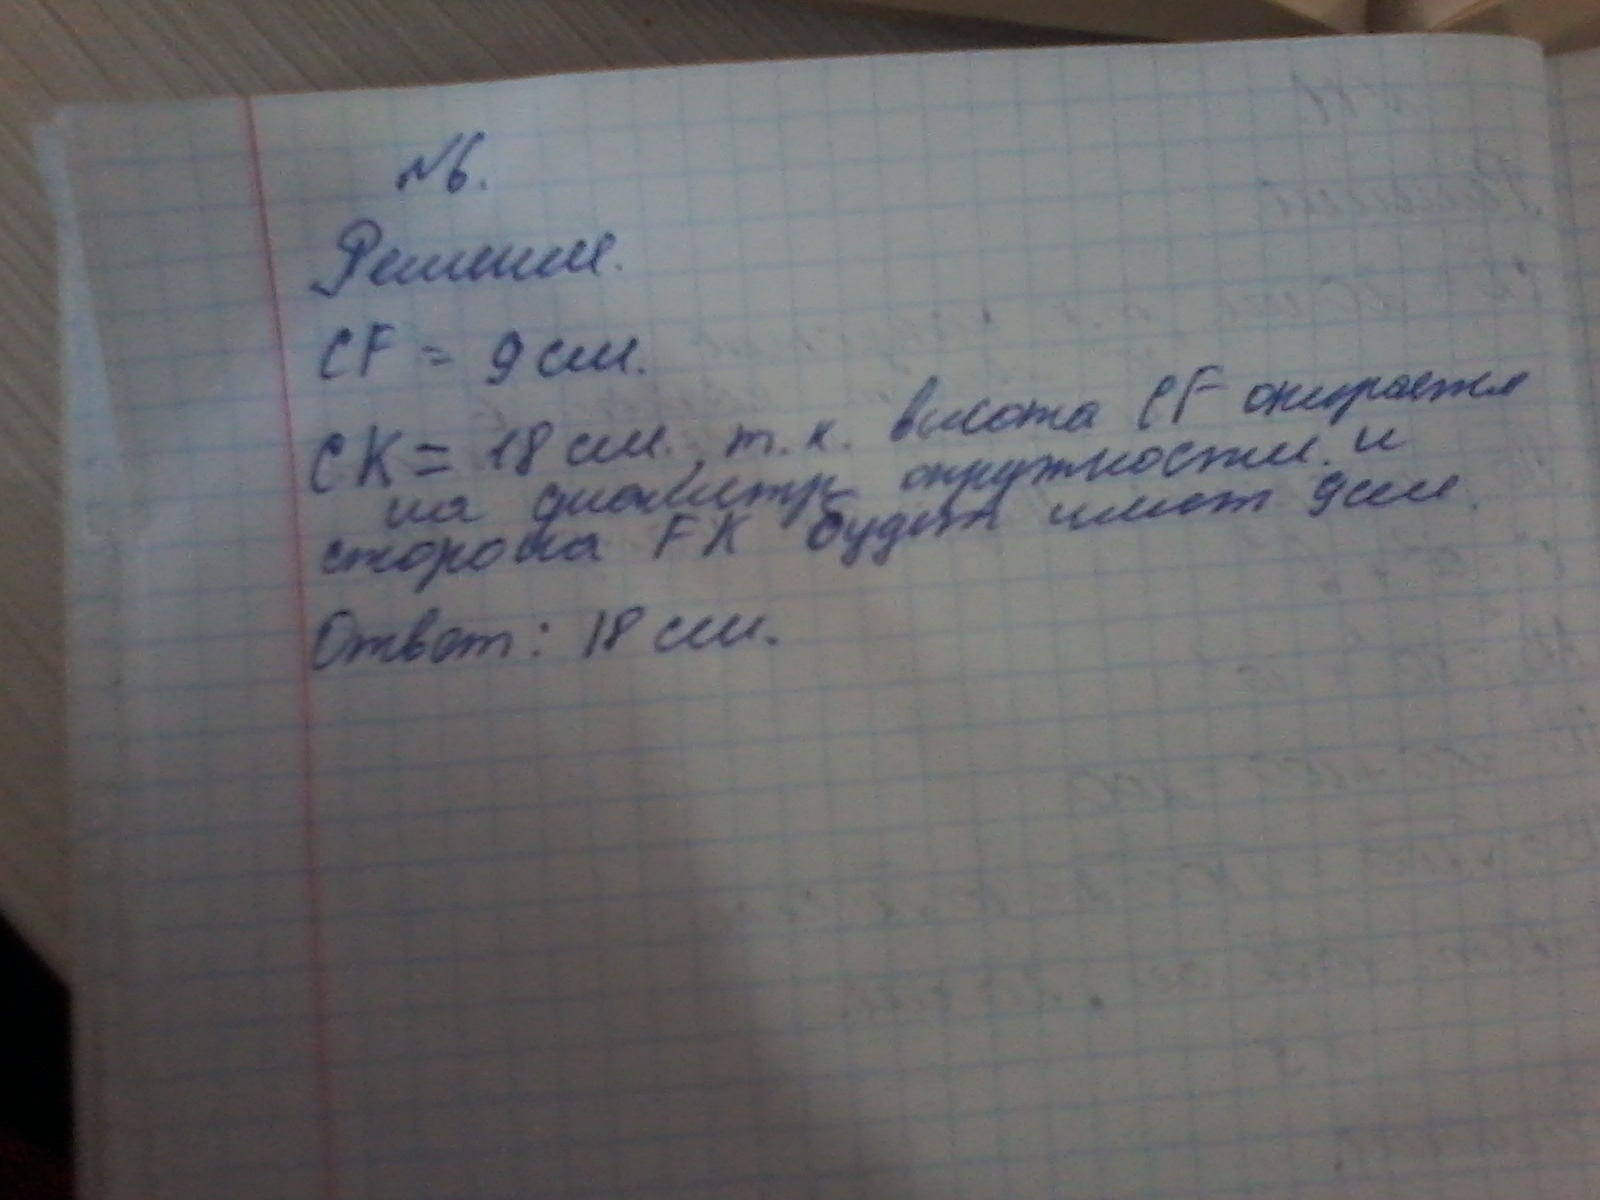 №6.
Решение.
CF = 9 см.
CK = 18 см., т.к. высота CF опирается
на диаметр окружности и
сторона FK будет имет 9 см.
Ответ: 18 см.